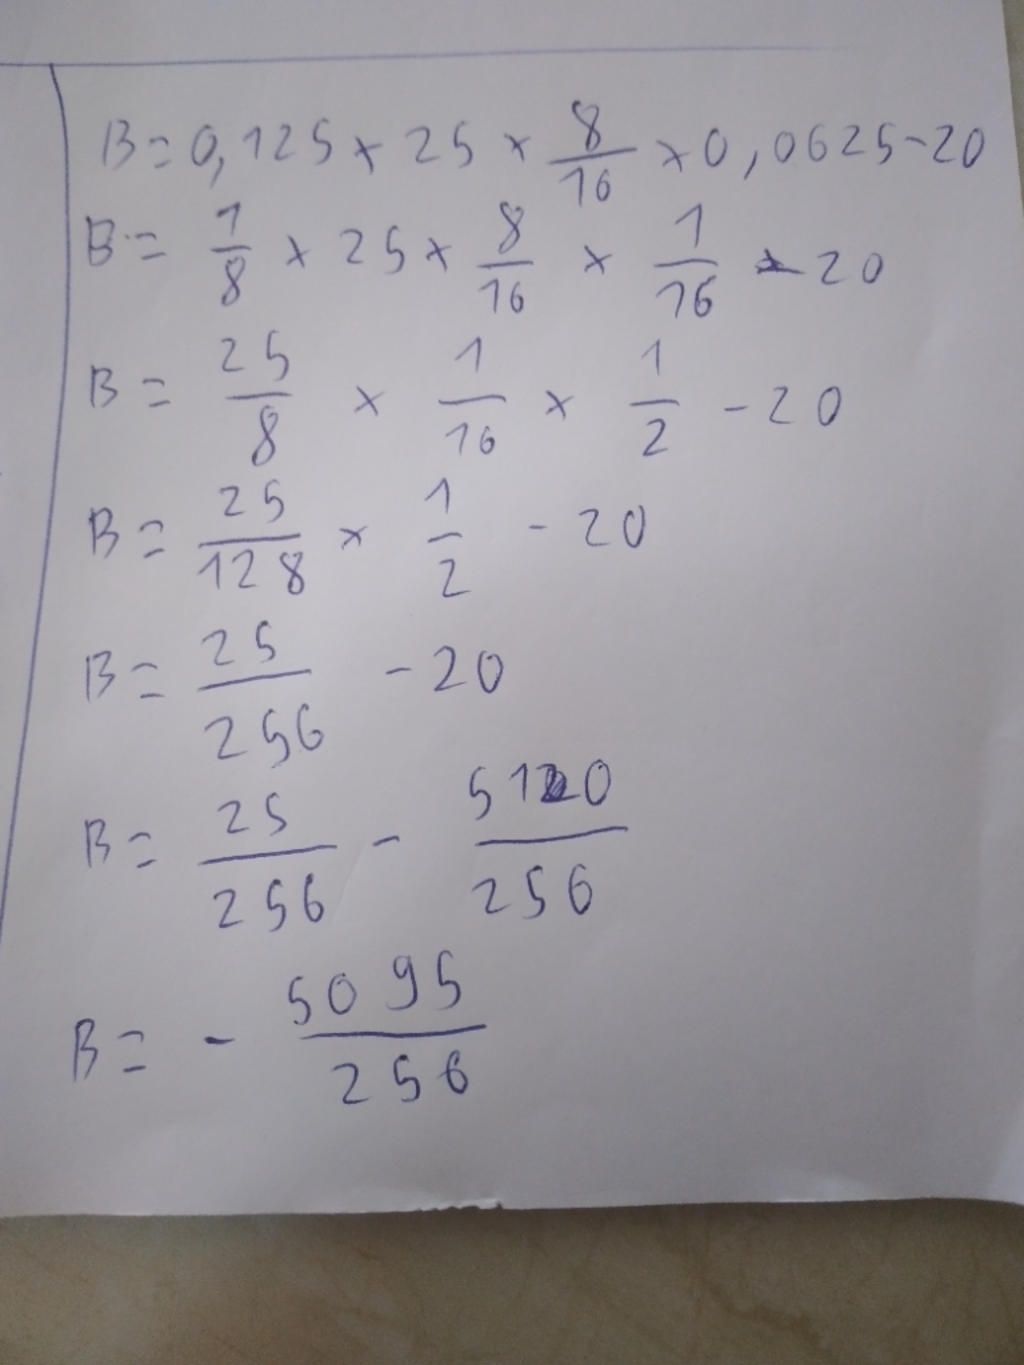 B = 0,125 × 25 × 8/16 × 0,0625 - 20
B = 1/8 × 25 × 8/16 × 1/16 - 20
B = 25/8 × 1/16 × 1/2 - 20
B = 25/128 × 1/2 - 20
B = 25/256 - 20
B = 25/256 - 5120/256
B = - 5095/256